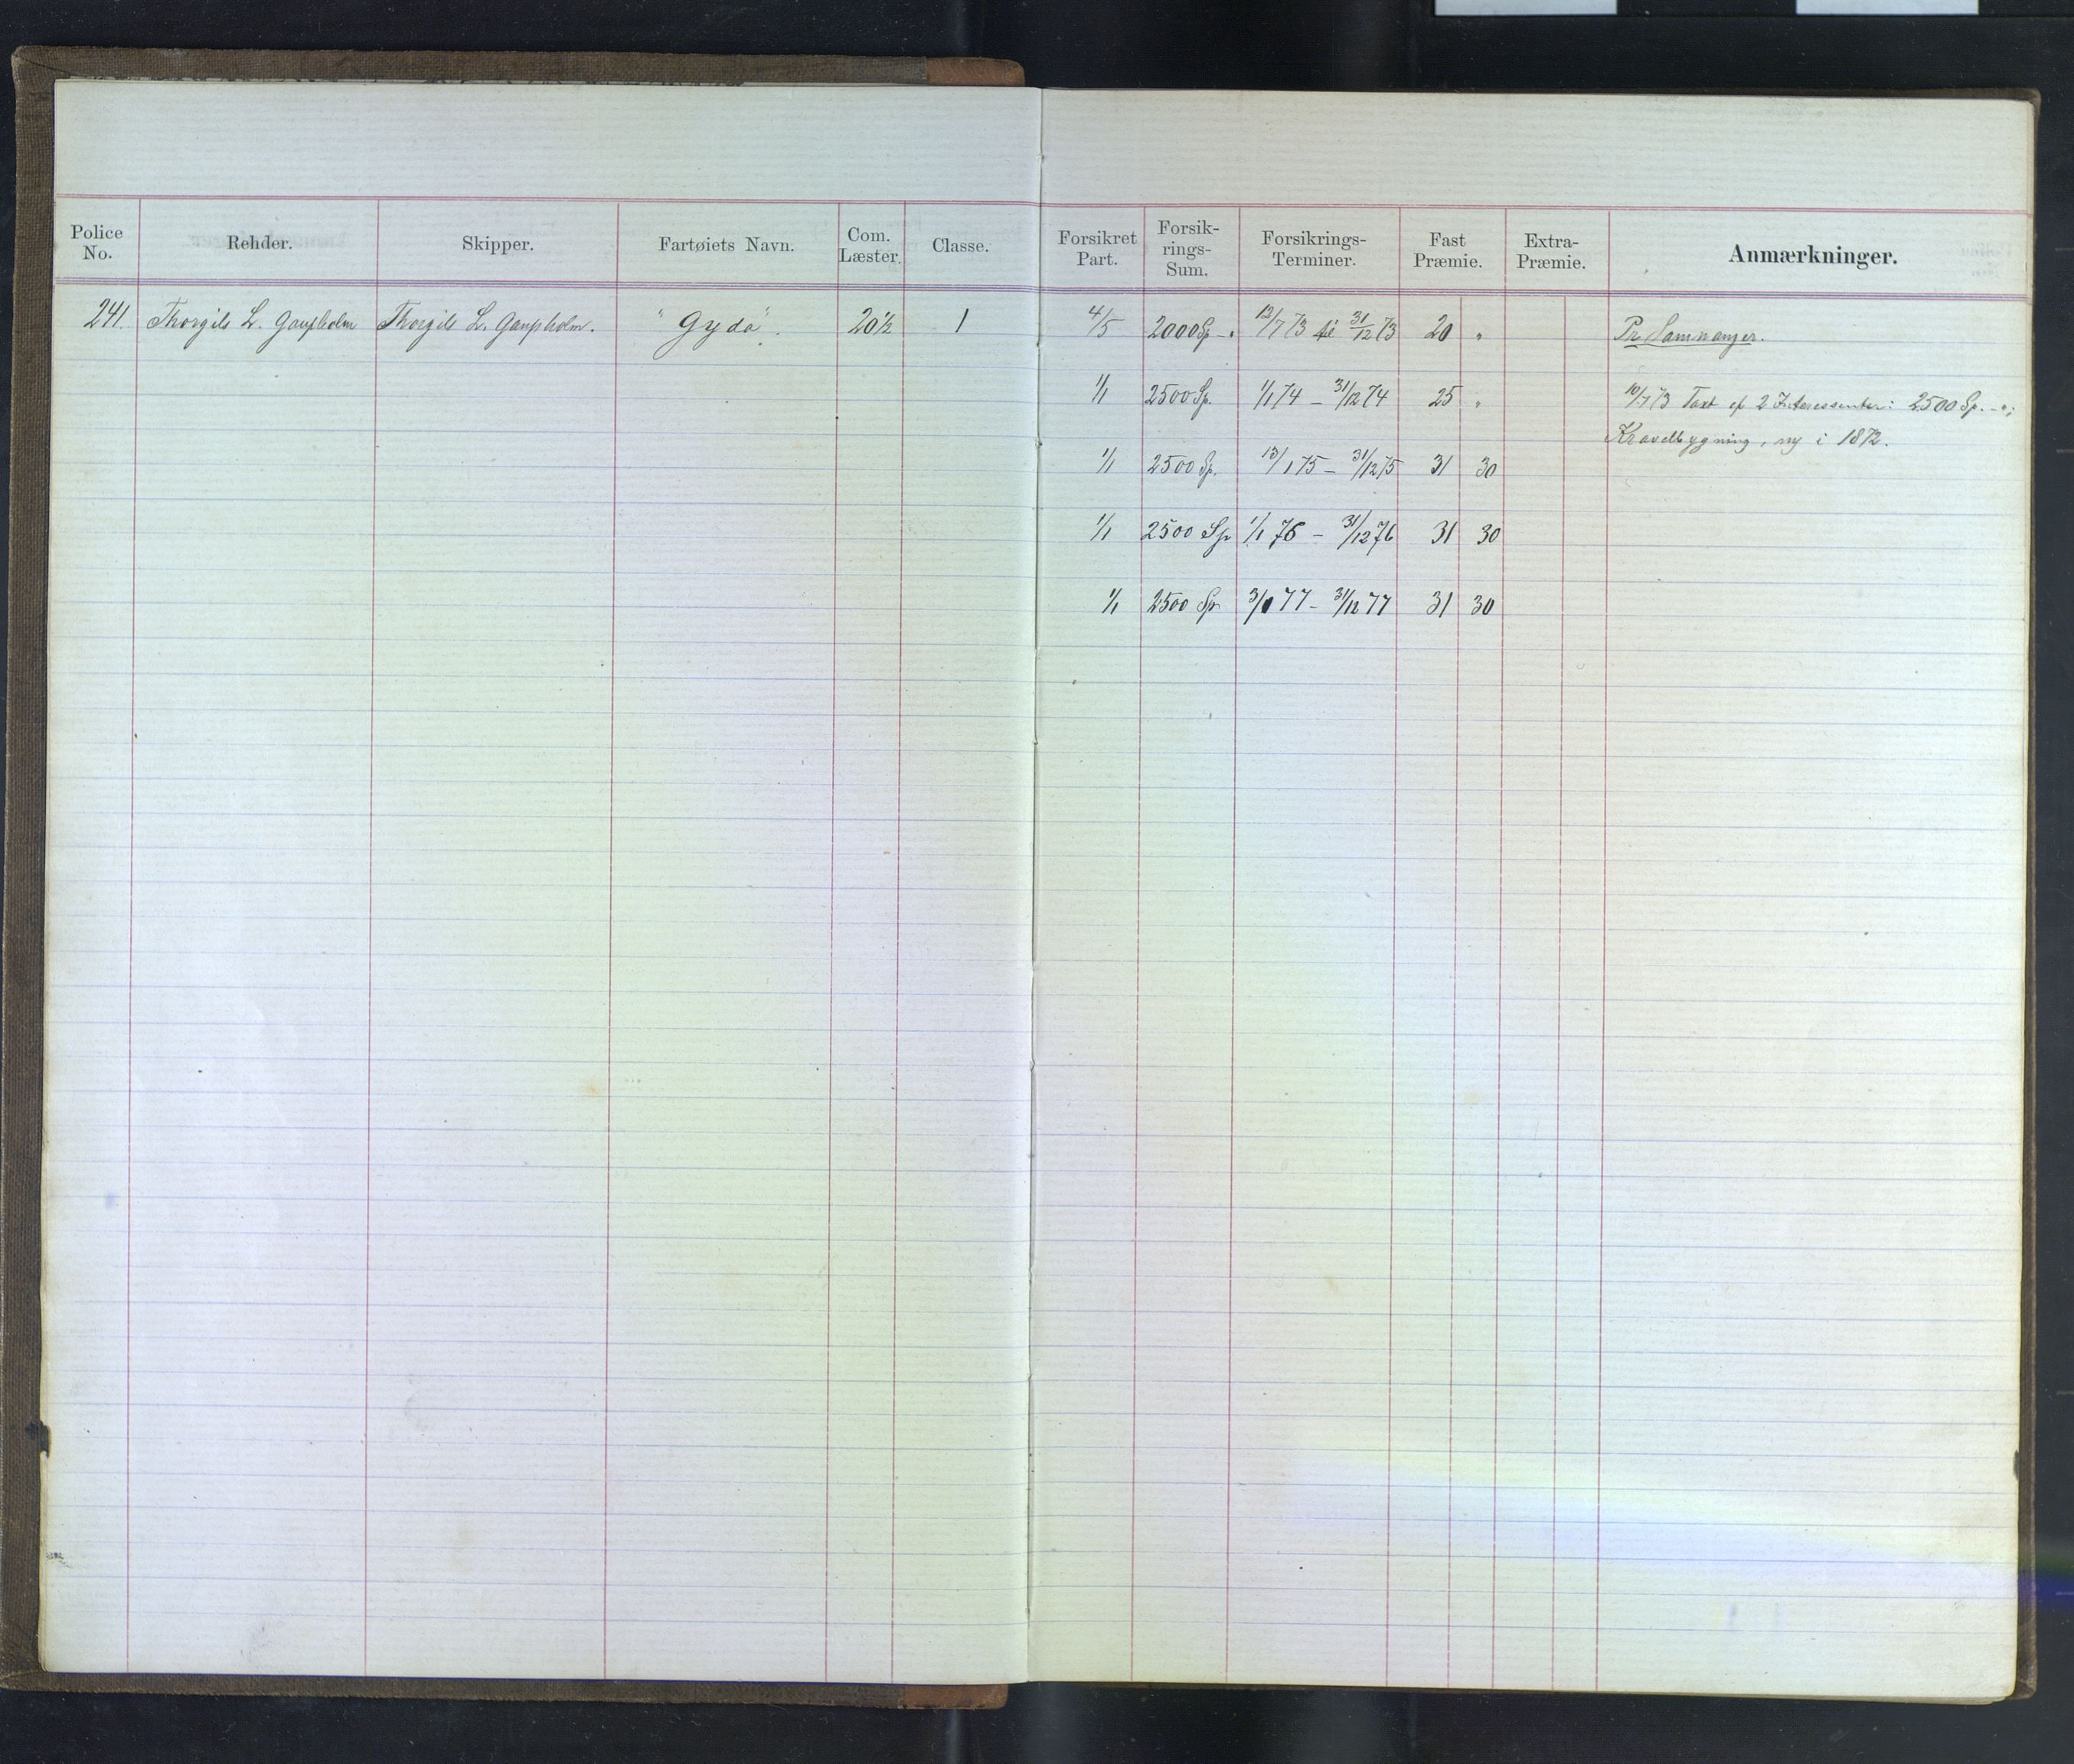 Police No. Rehder. Skipper. Fartøiets Navn. Com. Læster. Classe. Forsikret Part. Forsik-rings-Sum. Forsikrings-Terminer. Fast Præmie. Extra-Præmie. Anmærkninger.
241. Thorgils L. Gaupholm Thorgils L. Gaupholm. "Gyda". 20½ 1 4/5 2000 Sp - " 12/7 73 til 31/12 73 20 " Pr Samnanger.
1/1 2500 Sp. 1/1 74 - 31/12 74 25 " 10/7 73 Taxt af 2 Interessenter: 2500 Sp. - ";
Kravelbygning, ny i 1872.
1/1 2500 Sp. 13/1 75 - 31/12 75 31 30
1/1 2500 Sp 1/1 76 - 31/12 76 31 30
1/1 2500 Sp 3/1 77 - 31/12 77 31 30